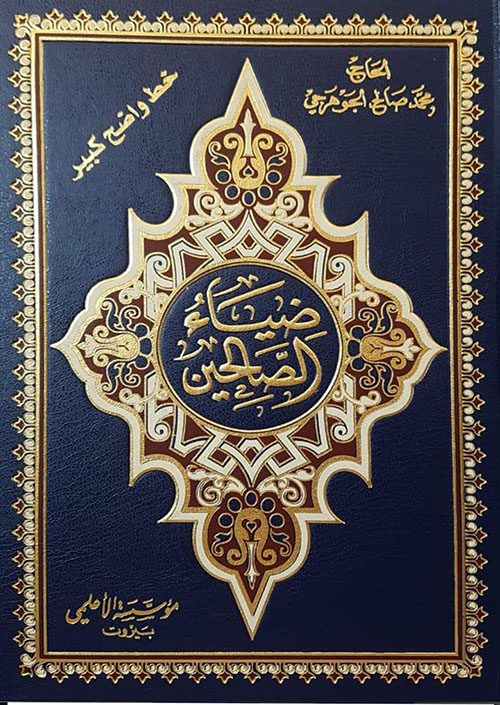 الحاج
محمد صالح الجوهرجي
خط واضح كبير
ضِيَاءُ
الصَّالِحِين
مؤسسة الأعلمي
بيروت